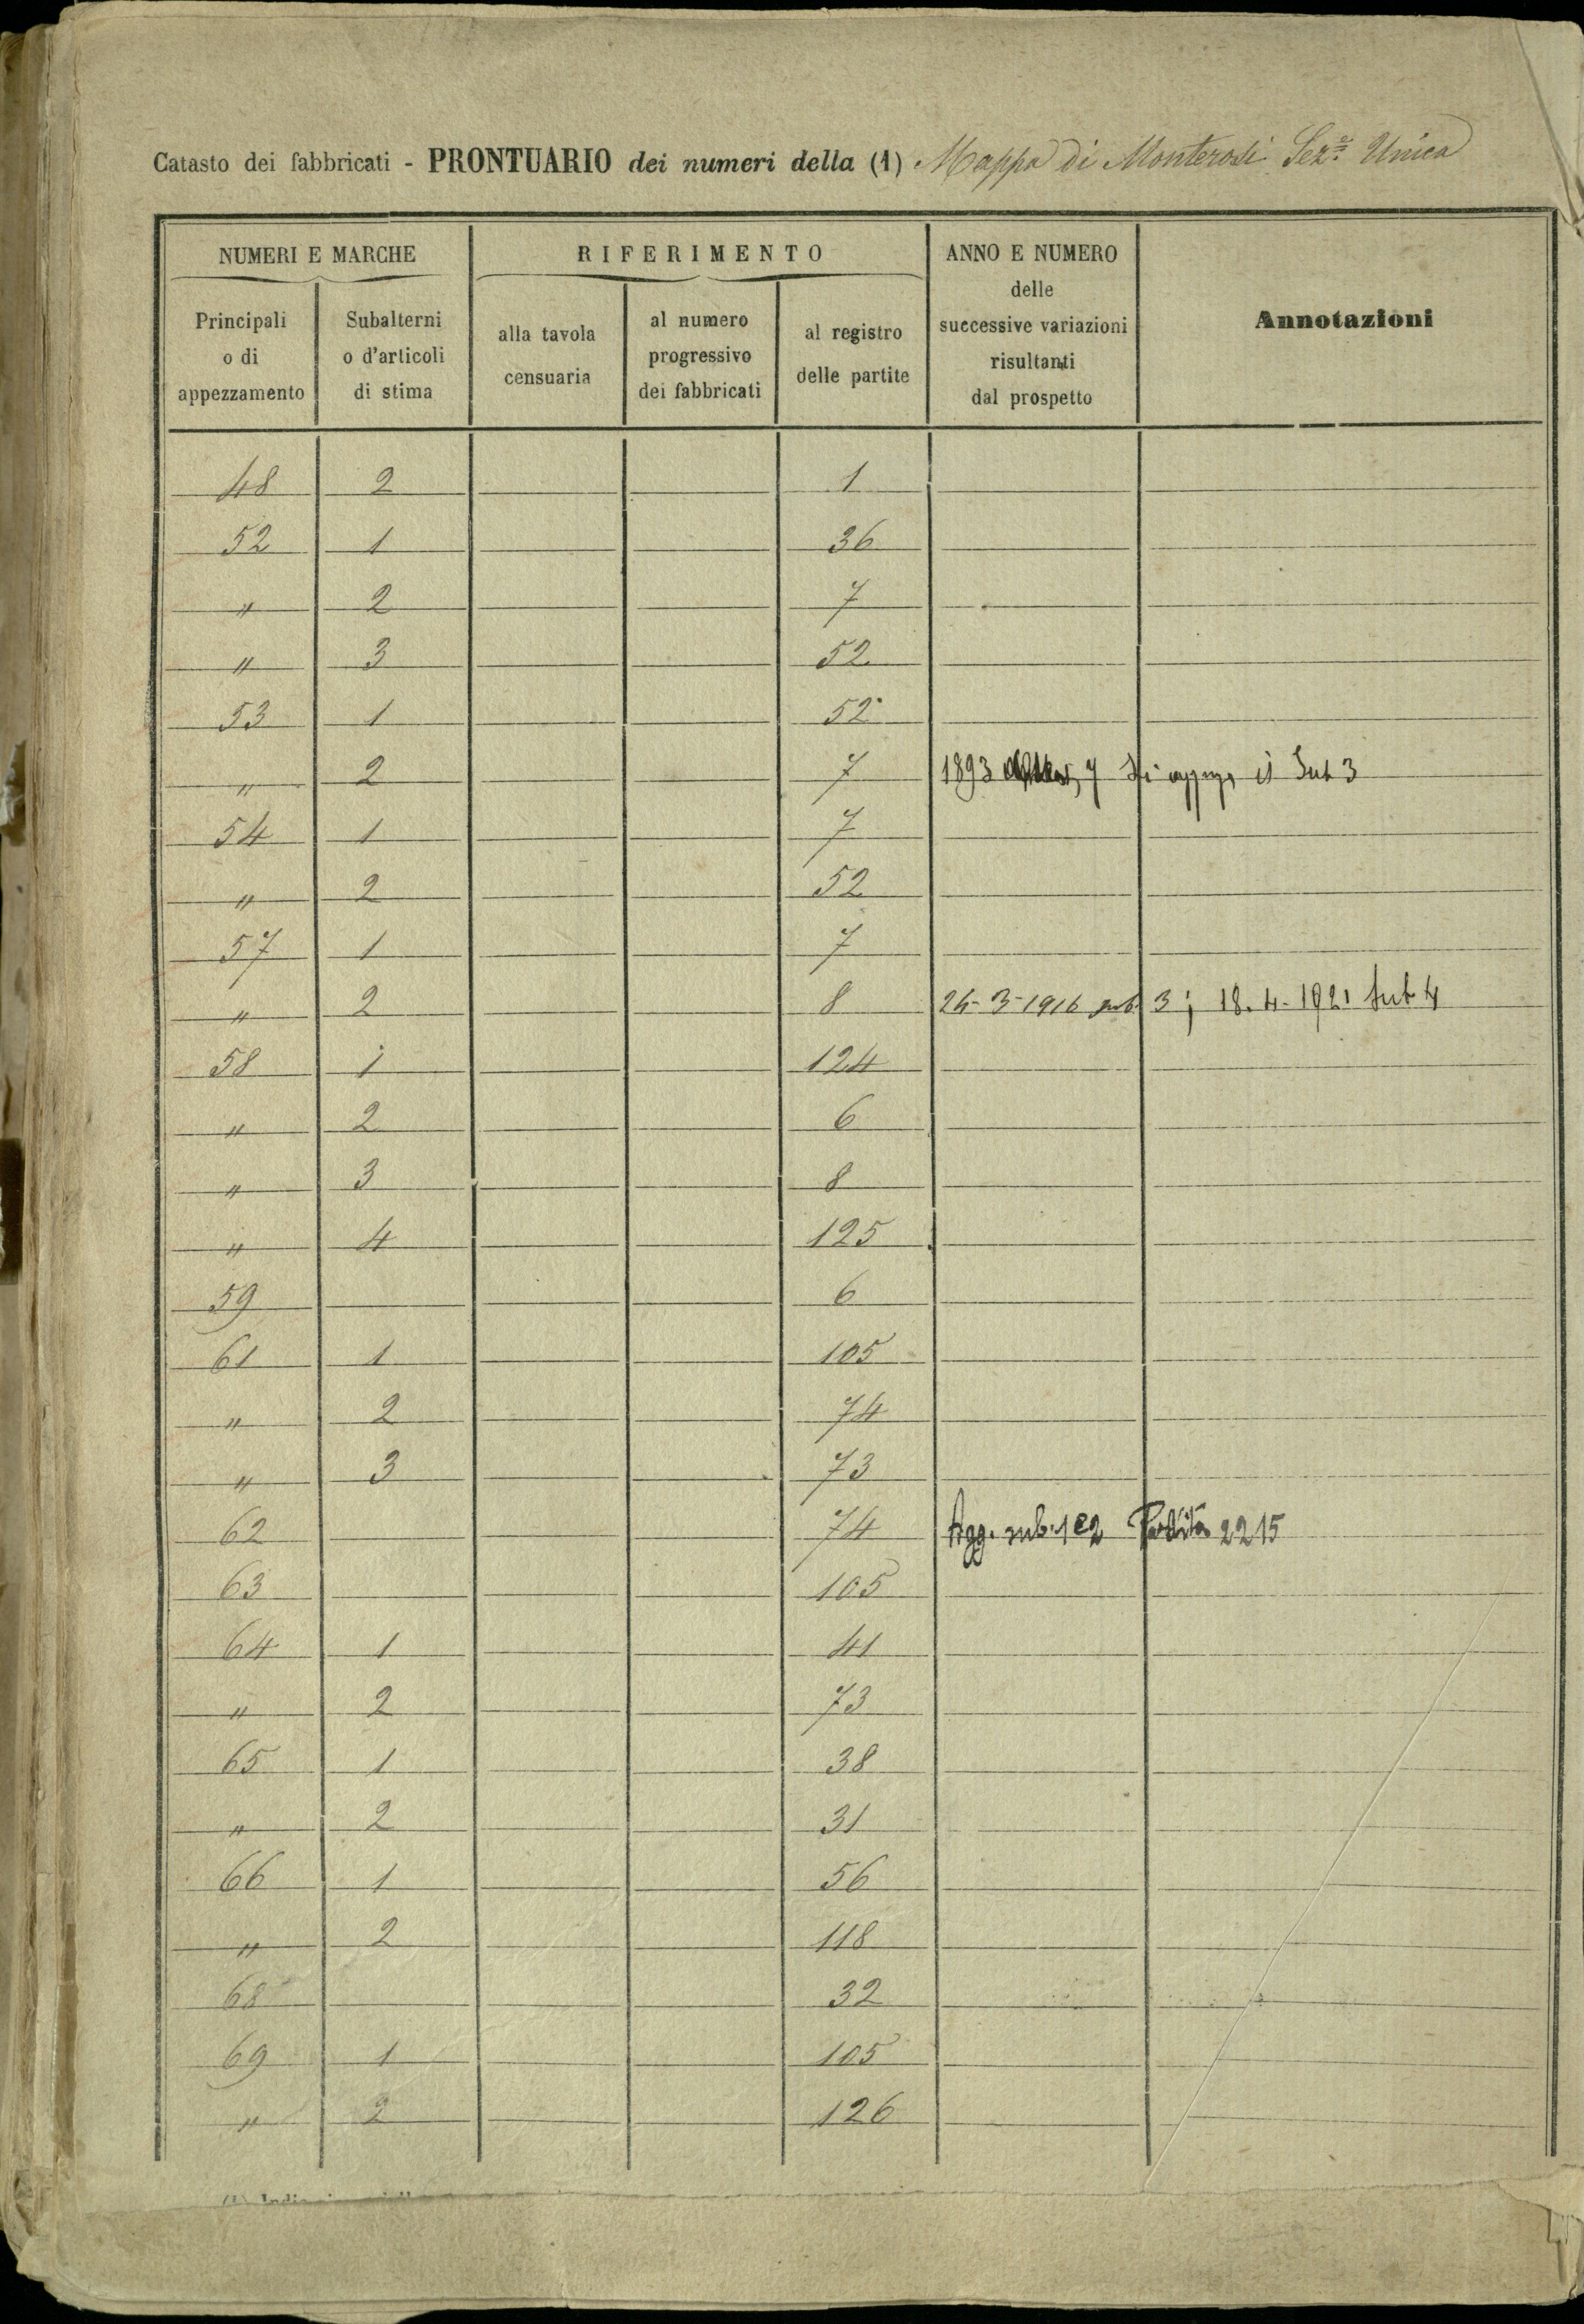 Catasto dei fabbricati - PRONTUARIO dei numeri della (1) Mappa di Monterosi Sez.e Unica
NUMERI E MARCHE
RIFERIMENTO
ANNO E NUMERO
delle
successive variazioni
risultanti
dal prospetto
Annotazioni
Principali
o di
appezzamento
Subalterni
o d'articoli
di stima
alla tavola
censuaria
al numero
progressivo
dei fabbricati
al registro
delle partite
48 2 1
52 1 36
" 2 7
" 3 52
53 1 52
" 2 7 1893 il Sub 3
54 1 7
" 2 52
57 1 7
" 2 8 24-3-1916 sub. 3; 18.4-1921 Sub 4
58 1 124
" 2 6
" 3 8
" 4 125
59 6
61 1 105
" 2 74
" 3 73
62 74 Agg. sub. 1 e 2 Partita 2215
63 105
64 1 41
" 2 73
65 1 38
" 2 31
66 1 56
" 2 118
68 32
69 1 105
" 2 126